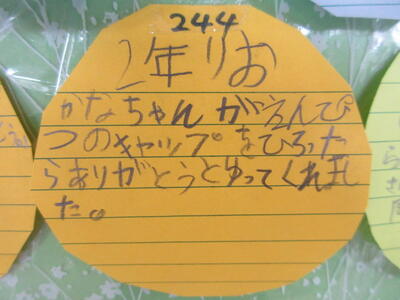 244
2年りお
かなちゃんがえんぴ
つのキャップをひろった
らありがとうとゆってくれまし
た。